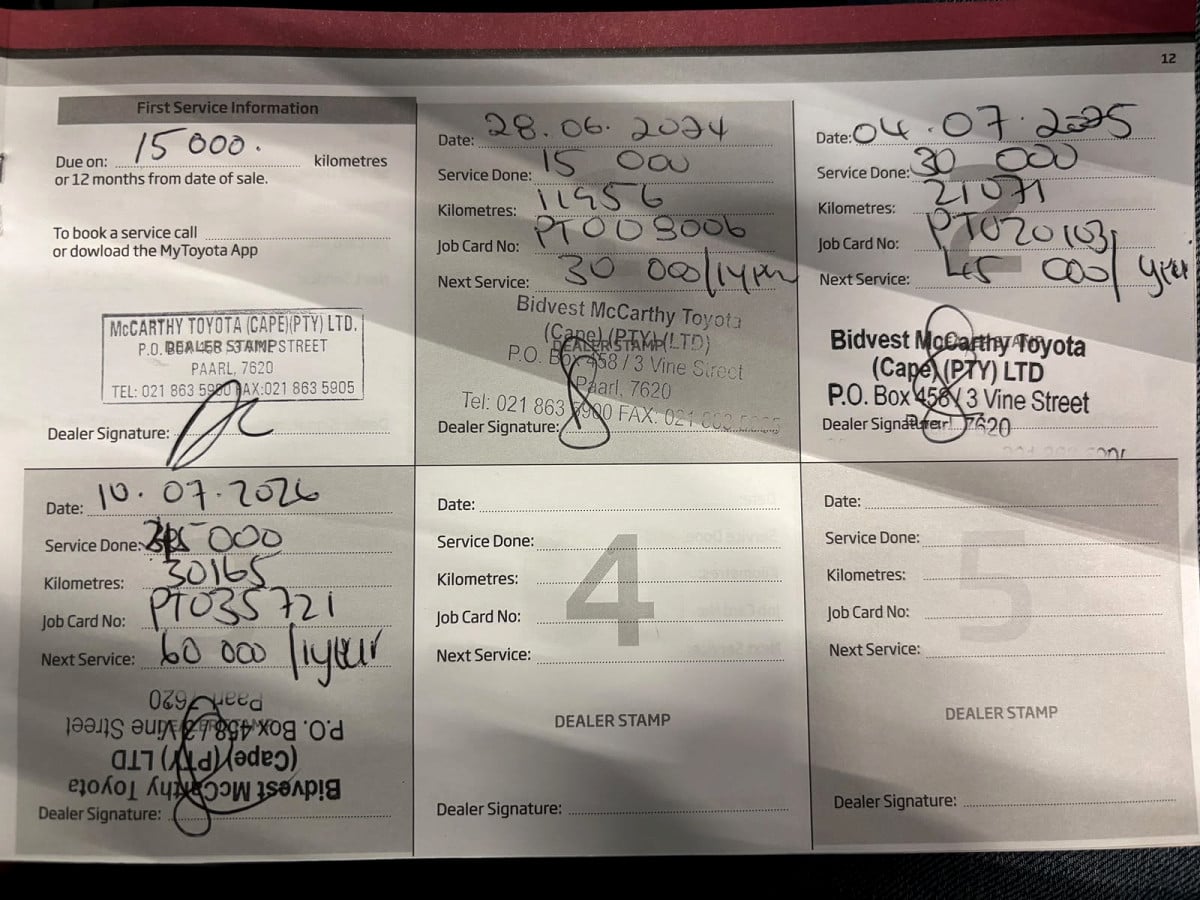 12
First Service Information
Due on: 15 000. kilometres
or 12 months from date of sale.
To book a service call
or dowload the MyToyota App
McCARTHY TOYOTA (CAPE)(PTY) LTD.
P.O. BOX 458 / 3 VINE STREET
DEALER STAMP
PAARL, 7620
TEL: 021 863 5900 FAX:021 863 5905
Dealer Signature:
Date: 28.06.2024
Service Done: 15 000
Kilometres: 11956
Job Card No: PT009006
Next Service: 30 000/1year
Bidvest McCarthy Toyota
(Cape) (PTY) (LTD)
DEALER STAMP
P.O. Box 458 / 3 Vine Street
Paarl, 7620
Tel: 021 863 5900 FAX: 021 863 5905
Dealer Signature:
2
Date: 04.07.2025
Service Done: 30 000
Kilometres: 21071
Job Card No: PT020103
Next Service: 45 000/ year
Bidvest McCarthy Toyota
(Cape) (PTY) LTD
P.O. Box 458 / 3 Vine Street
Paarl 7620
Dealer Signature:
Date: 10.07.2026
Service Done: 45 000
Kilometres: 30165
Job Card No: PT035721
Next Service: 60 000 /1year
Bidvest McCarthy Toyota
(Cape) (PTY) LTD
P.O. Box 458 / 3 Vine Street
Paarl 7620
Dealer Signature:
4
Date:
Service Done:
Kilometres:
Job Card No:
Next Service:
DEALER STAMP
Dealer Signature:
5
Date:
Service Done:
Kilometres:
Job Card No:
Next Service:
DEALER STAMP
Dealer Signature: